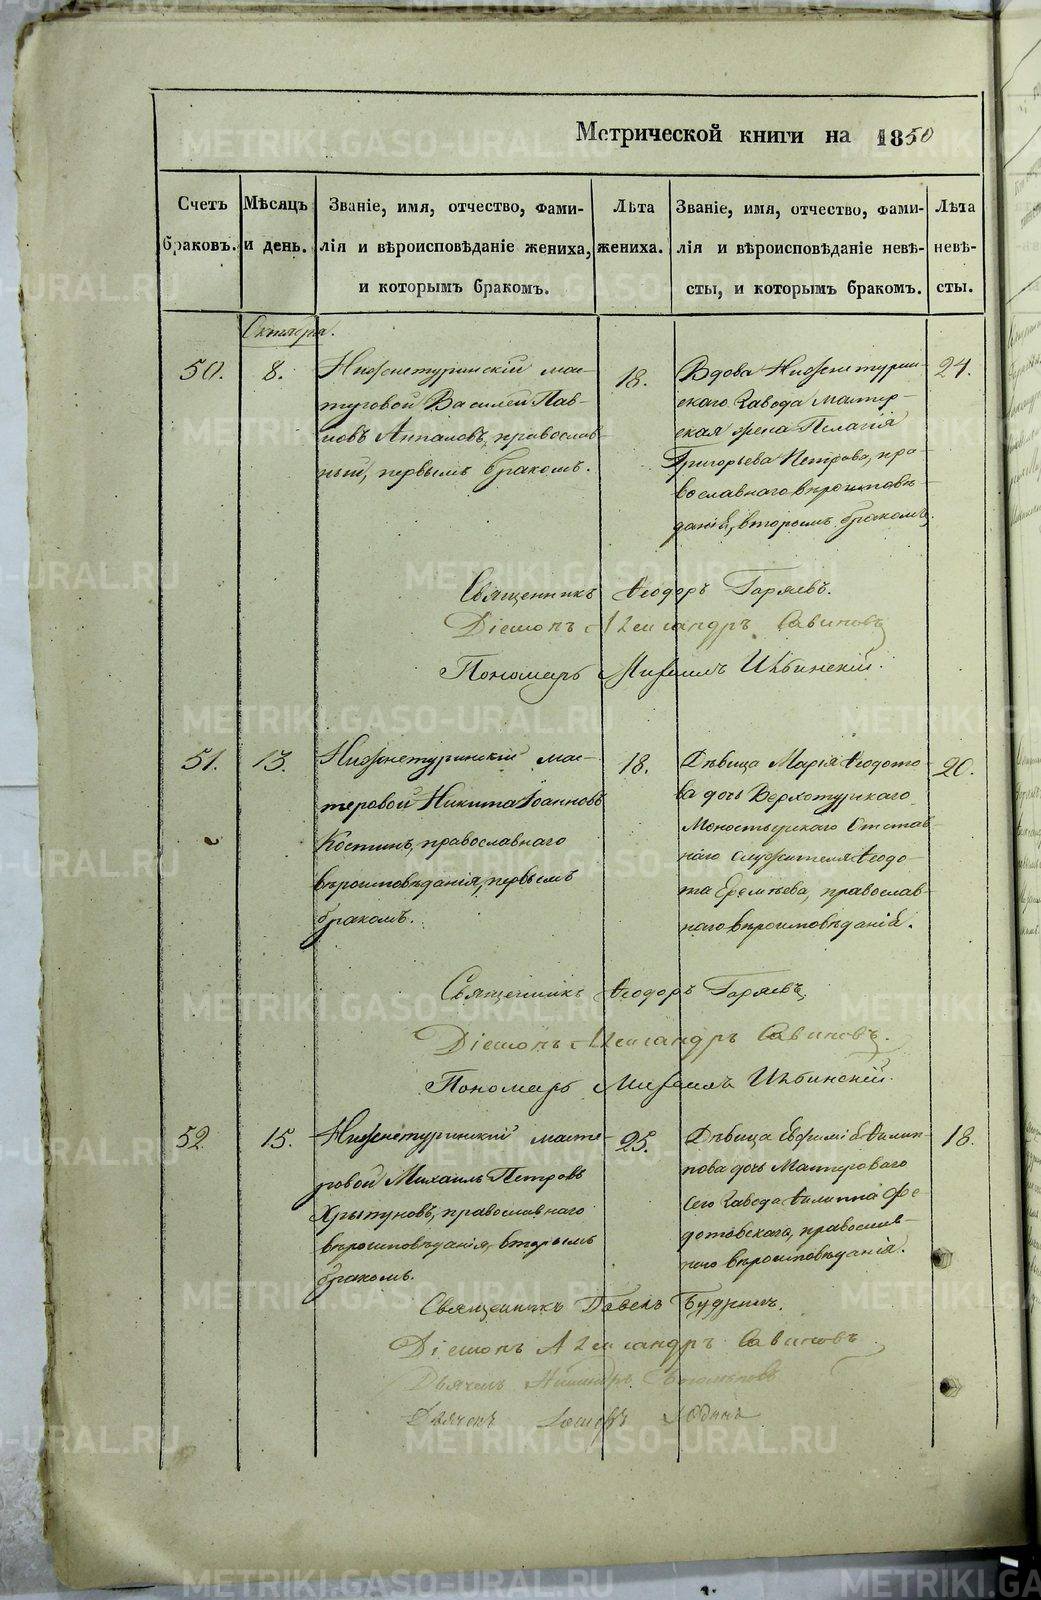 Метрической книги на 1850
Счетъ браковъ.
Мѣсяцъ и день.
Званіе, имя, отчество, фами-
лія и вѣроисповѣданіе жениха,
и которымъ бракомъ.
Лѣта жениха.
Званіе, имя, отчество, фами-
лія и вѣроисповѣданіе невѣ-
сты, и которымъ бракомъ.
Лѣта невѣ-
сты.
Октября.
50.
8.
Нижнетуринскій мас-
теровой Василей Пав-
ловъ православ-
ный, первымъ бракомъ.
18.
Вдова Нижнетурин-
скаго завода мастер-
ская жена Пелагія
Григорьева Петрова, пра-
вославнаго вѣроисповѣ-
данія, вторымъ бракомъ.
24.
Священникъ Ѳеодоръ Гаряевъ.
Діаконъ Александръ Савиновъ
Пономарь Михаилъ
51.
13.
Нижнетуринскій мас-
теровой Никита Іоанновъ
Костинъ, православнаго
вѣроисповѣданія, первымъ
бракомъ.
18.
Дѣвица Марія Ѳеодото-
ва дочь Верхотурскаго
Монастырскаго Отстав-
наго служителя Ѳеодо-
та Еремѣева, православ-
наго вѣроисповѣданія.
20.
Священникъ Ѳеодоръ Гаряевъ.
Діаконъ Александръ Савиновъ.
Пономарь Михаилъ
52.
15.
Нижнетуринскій масте-
ровой Михаилъ Петровъ
Хрыпуновъ, православнаго
вѣроисповѣданія, вторымъ
бракомъ.
25.
Дѣвица Евфимія Филип-
пова дочь Мастероваго
сего завода Филиппа Фе-
дотовскаго, православ-
наго вѣроисповѣданія.
18.
Священникъ Павелъ Будринъ.
Діаконъ Александръ Савиновъ
Дьячекъ
Дьячекъ
METRIKI.GASO-URAL.RU